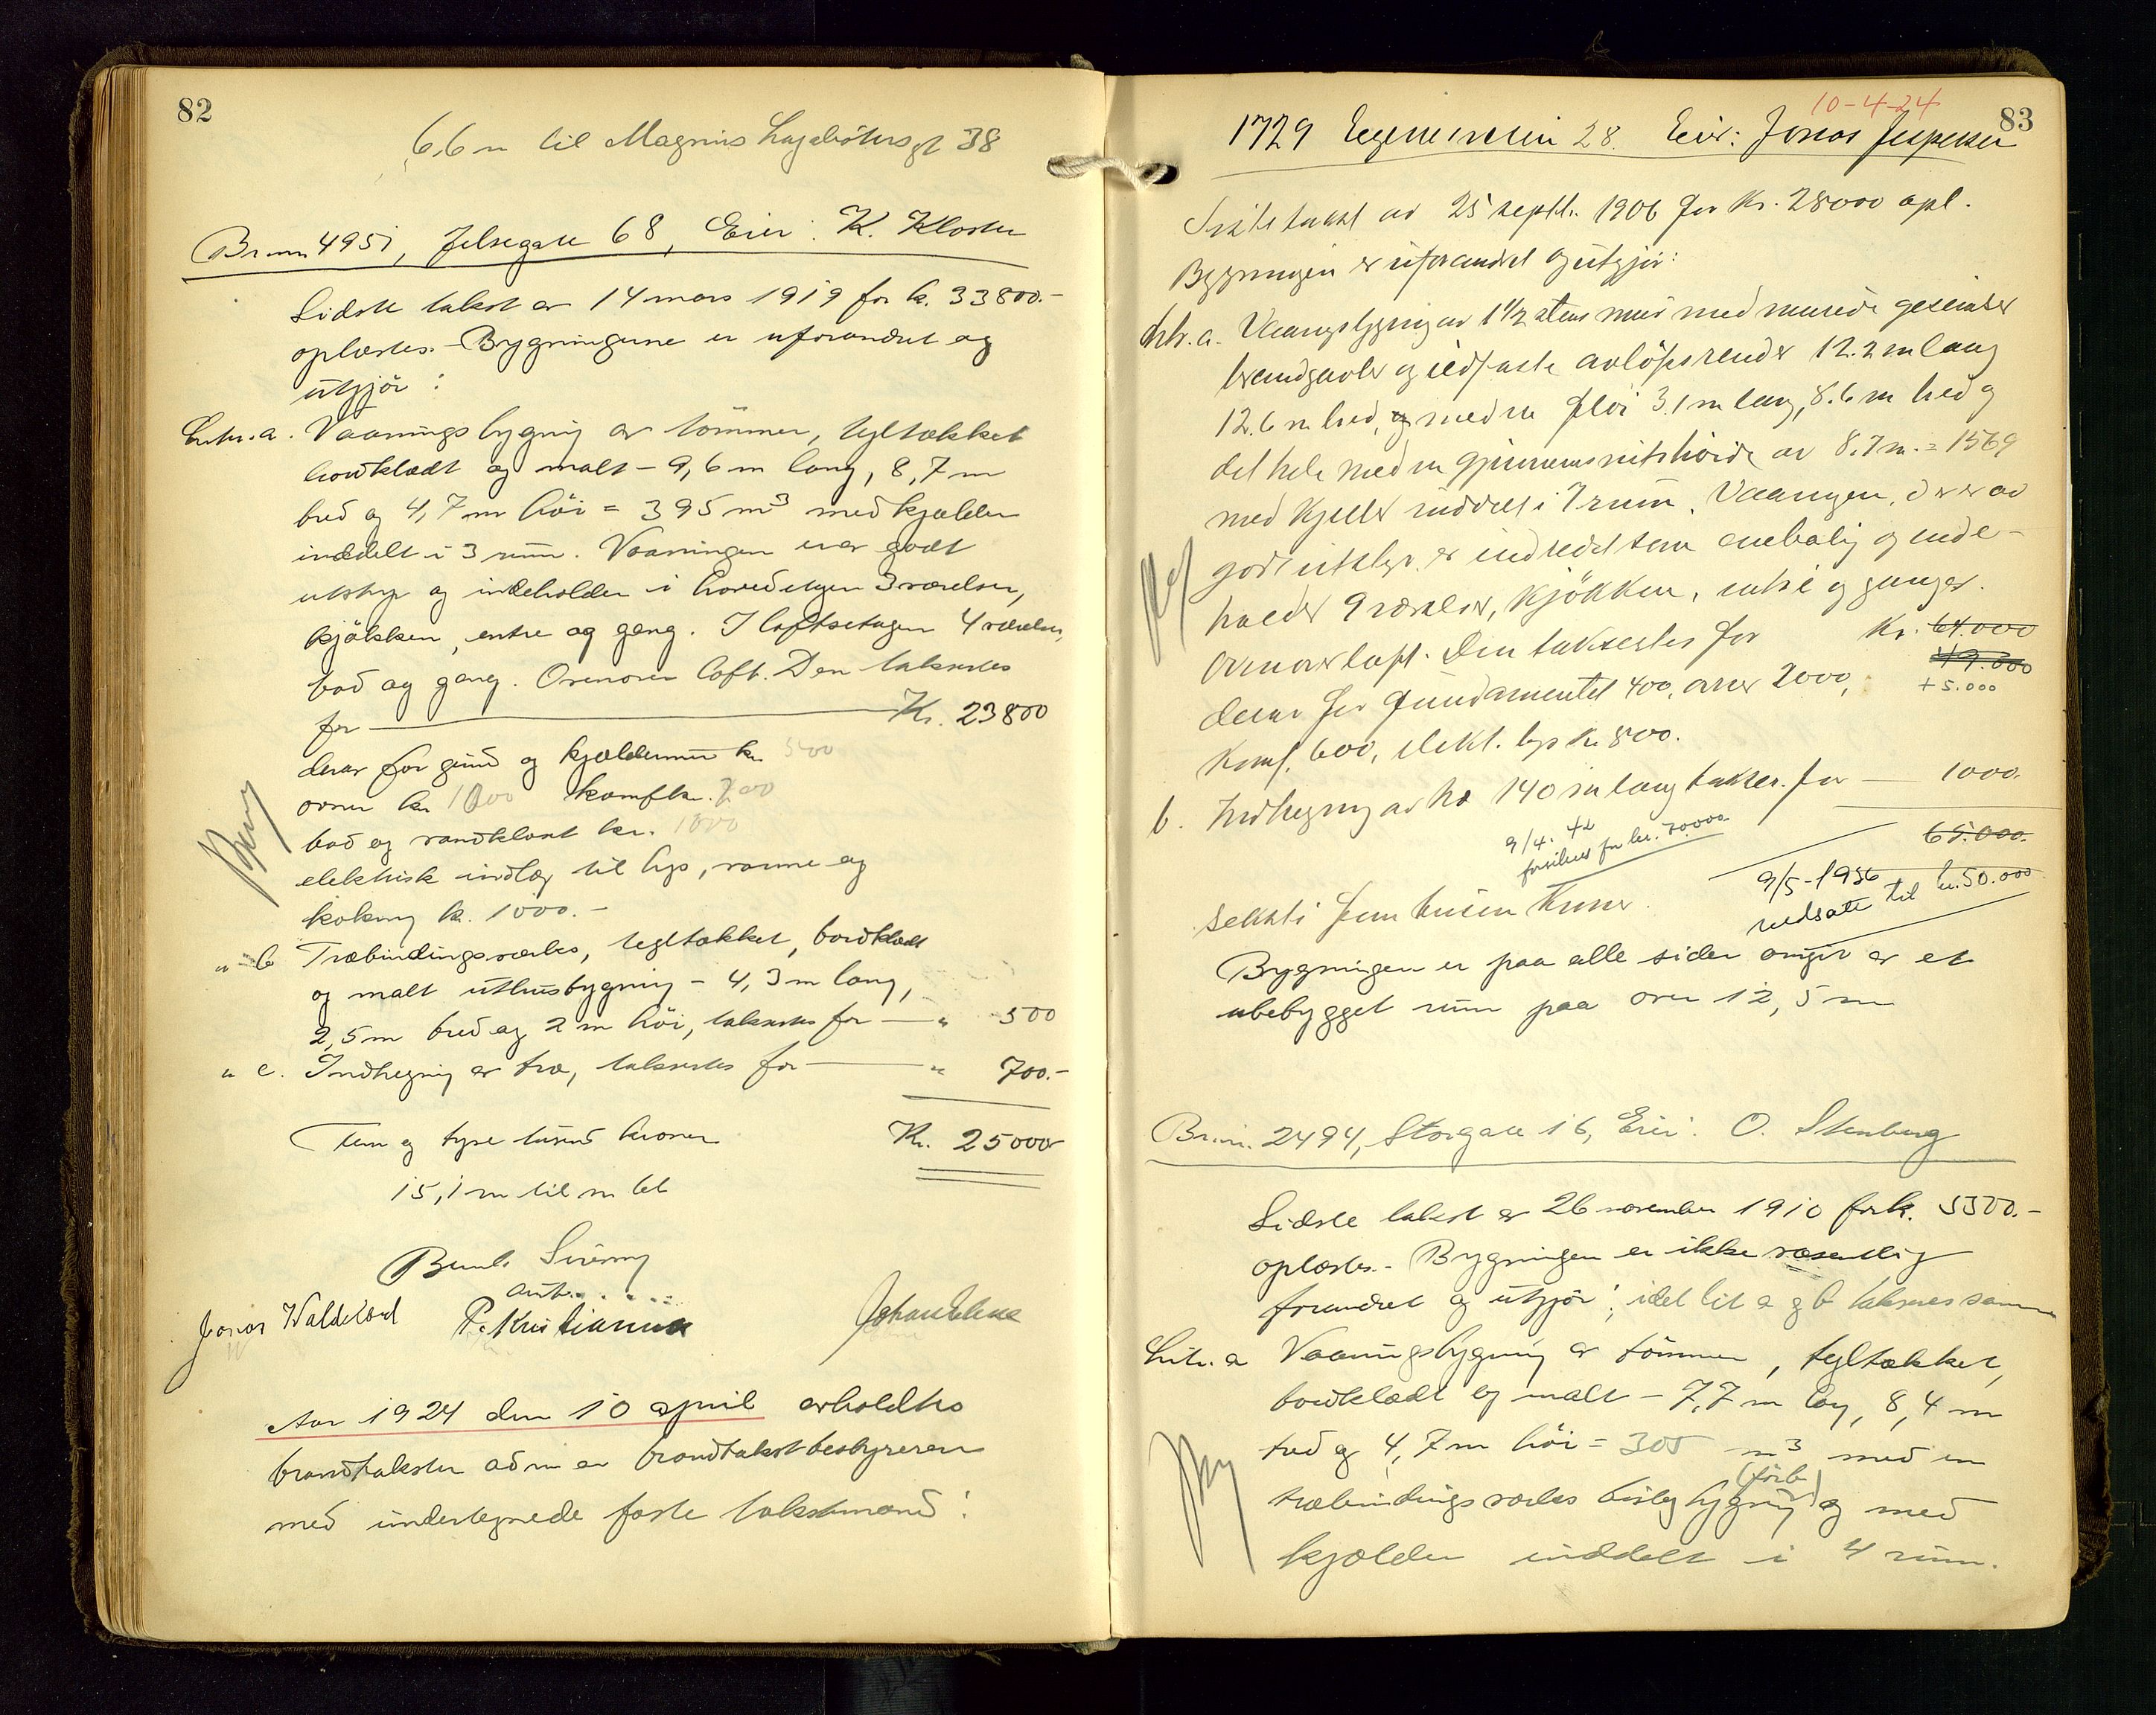 82
6,6 m til Magnus Lagabøtersgt 38
Br.nr. 4951, Jelsegate 68, Eier: K. Kloster
Sidste takst av 14 mars 1919 for k. 33800.-
oplæstes. - Bygningerne er uforandret og
utgjör:
Litr. a. Vaaningsbygning av tömmer, tegltækket
bordklædt og malt - 9,6 m lang, 8,7 m
bred og 4,7 m höi = 395 m³ med kjælder
inddelt i 3 rum. Vaaningen er godt
utstyr og indeholder i hovedetagen 3 værelser,
kjökken, entre og gang. I loftsetagen 4 værelser,
bad og gang. Ovenover loft. Den takseres
for — Kr. 23800
derav for grund og kjældermur kr. 500
ovner kr. 1000 komf. kr. 200
bad og vandklost kr. 1000
elektrisk indlæg til lys, varme og
kokning k. 1000.-
" b Træbindingsverks, tegltækket, bordklædt
og malt uthusbygning - 4,3 m lang,
2,5 m bred og 2 m höi, takseres for — " 500
" c. Indhegning av træ, takseres for — " 700.-
Fem og tyve tusend kroner Kr. 25000
15,1 m til m bt
Jonas Waldeland P. Kristiansen
Aar 1924 den 10 april avholdtes
brandtakster adm. av brandtakstbestyreren
med undertegnede faste takstmænd:
10-4-24
83
1729 Egenesveien 28. Eier: Jonas Jespersen
Sidste takst av 25 septb. 1906 for Kr. 28000 opl.
Bygningen er uforandret og utgjör:
Litr. a. Vaaningsbygning av 1½ stens mur med murede gesimser
brandgavler og ildfaste avlöpsrender 12.2 m lang
12.6 m bred, og med en flöi 3.1 m lang, 8.6 m bred og
det hele med en gjennemsnitshöide av 8.7 m. = 1569
med kjelder inddelt i 7 rum. Vaaningen, der er av
godt utstyr er indredet som enebolig og inde-
holder 9 værelser, kjökken, entre og ganger.
Ovenover loft. Den takseres for Kr. 64.000
49.000
+ 5.000
derav for fundamentet 400, ovner 2000,
Komf. 600, elekt. lys Kr 800.
b. Indhegning av træ 140 m lang takser. for — 1000.
65.000.
9/4. 42
forsikret for kr. 70000.
9/5-1936
nedsatt til kr. 50.000
seksti fem tusen Kroner.
Bygningen er paa alle sider omgit av et
ubebygget rum paa over 12,5 m
Br.nr. 2494, Storgate 16, Eier: O. Stenberg
Sidste takst av 26 november 1910 for k. 5500.-
oplæstes. - Bygningen er ikke væsentlig
forandret og utgjör; idet lit a og b takseres samme
Litr. a Vaaningsbygning av tömmer, tegltækket,
bordklædt og malt - 7,7 m lang, 8,4 m
bred og 4,7 m höi = 305 m³ med en
træbindingsverks bislagbygning og med
kjælder inddelt i 4 rum.